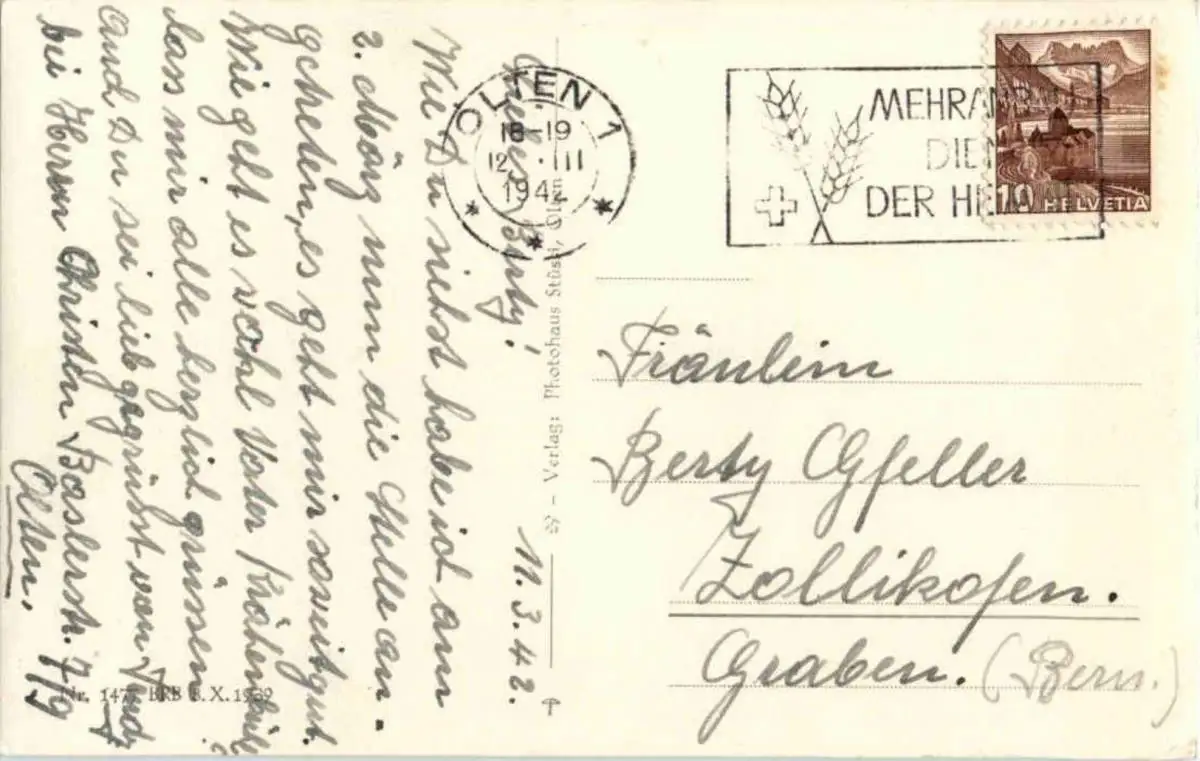 11. 3. 42.
Liebes Berty!
Wie Du siehst habe ich am
2. März nun die Stelle an-
getreten, es geht mir soweit gut.
Wie geht es wohl Vater
lass mir alle herzlich grüssen
Und Du sei lieb gegrüsst von
bei Herrn Christen Baslerstr. 7/9
Olten.
Nr. 147 BRB 3.X.1939
- Verlag: Photohaus Stüssi, Olten
OLTEN 1
18-19
12. III
194
MEHRAN
DIEN
DER HE
10 HELVETIA
Fräulein
Berty Gfeller
Zollikofen.
Graben. (Bern.)